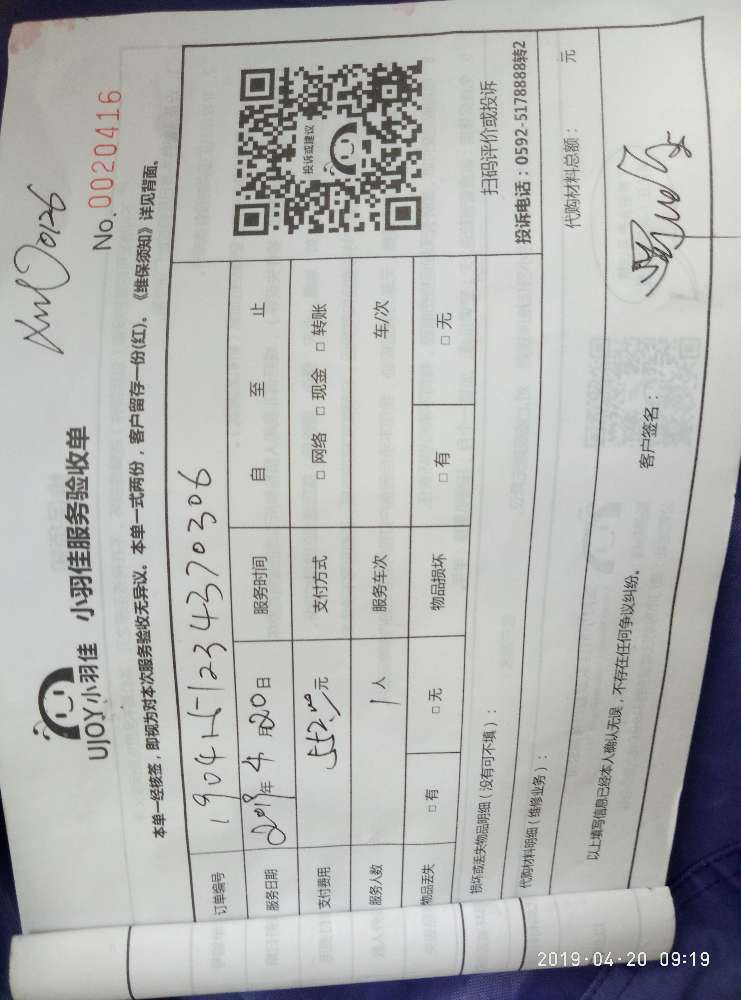 XMJ00126
No.0020416
UJOY小羽佳 小羽佳服务验收单
本单一经核签，即视为对本次服务验收无异议。本单一式两份，客户留存一份(红)。《维保须知》详见背面。
订单编号 1904151234370306
服务日期 2019年4月20日 服务时间 自 至 止
支付费用 552.00元 支付方式 □网络 □现金 □转账
服务人数 1人 服务车次 车/次
物品丢失 □有 □无 物品损坏 □有 □无
投诉或建议
扫码评价或投诉
投诉电话：0592-5178888转2
损坏或丢失物品明细（没有可不填）：
代购材料明细（维修业务）： 代购材料总额： 元
以上填写信息已经本人确认无误，不存在任何争议纠纷。
客户签名：
2019-04-20 09:19